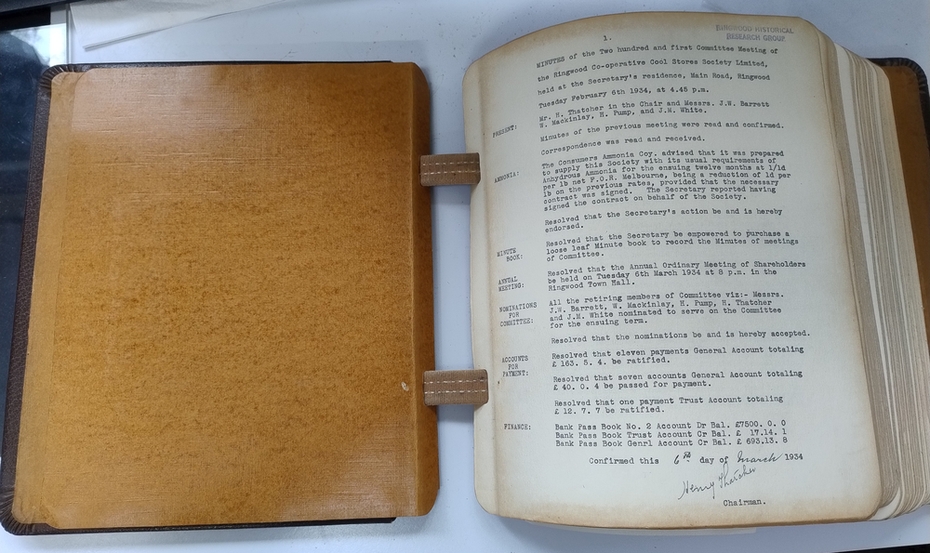 1.
RINGWOOD HISTORICAL
RESEARCH GROUP
MINUTES of the Two hundred and first Committee Meeting of
the Ringwood Co-operative Cool Stores Society Limited,
held at the Secretary's residence, Main Road, Ringwood
Tuesday February 6th 1934, at 4.45 p.m.
PRESENT:
Mr. H. Thatcher in the Chair and Messrs. J.W. Barrett
W. Mackinlay, H. Pump, and J.M. White.
Minutes of the previous meeting were read and confirmed.
Correspondence was read and received.
AMMONIA:
The Consumers Ammonia Coy. advised that it was prepared
to supply this Society with its usual requirements of
Anhydrous Ammonia for the ensuing twelve months at 1/1d
per lb net F.O.R. Melbourne, being a reduction of 1d per
lb on the previous rates, provided that the necessary
contract was signed. The Secretary reported having
signed the contract on behalf of the Society.
Resolved that the Secretary's action be and is hereby
endorsed.
MINUTE
BOOK:
Resolved that the Secretary be empowered to purchase a
loose leaf Minute book to record the Minutes of meetings
of Committee.
ANNUAL
MEETING:
Resolved that the Annual Ordinary Meeting of Shareholders
be held on Tuesday 6th March 1934 at 8 p.m. in the
Ringwood Town Hall.
NOMINATIONS
FOR
COMMITTEE:
All the retiring members of Committee viz:- Messrs.
J.W. Barrett, W. Mackinlay, H. Pump, H. Thatcher
and J.M. White nominated to serve on the Committee
for the ensuing term.
Resolved that the nominations be and is hereby accepted.
ACCOUNTS
FOR
PAYMENT:
Resolved that eleven payments General Account totaling
£ 163. 5. 4. be ratified.
Resolved that seven accounts General Account totaling
£ 40. 0. 4 be passed for payment.
Resolved that one payment Trust Account totaling
£ 12. 7. 7 be ratified.
FINANCE:
Bank Pass Book No. 2 Account Dr Bal. £7500. 0. 0
Bank Pass Book Trust Account Cr Bal. £ 17.14. 1
Bank Pass Book Genrl Account Cr Bal. £ 693.13. 8
Confirmed this 6th day of March 1934
Henry Thatcher
Chairman.